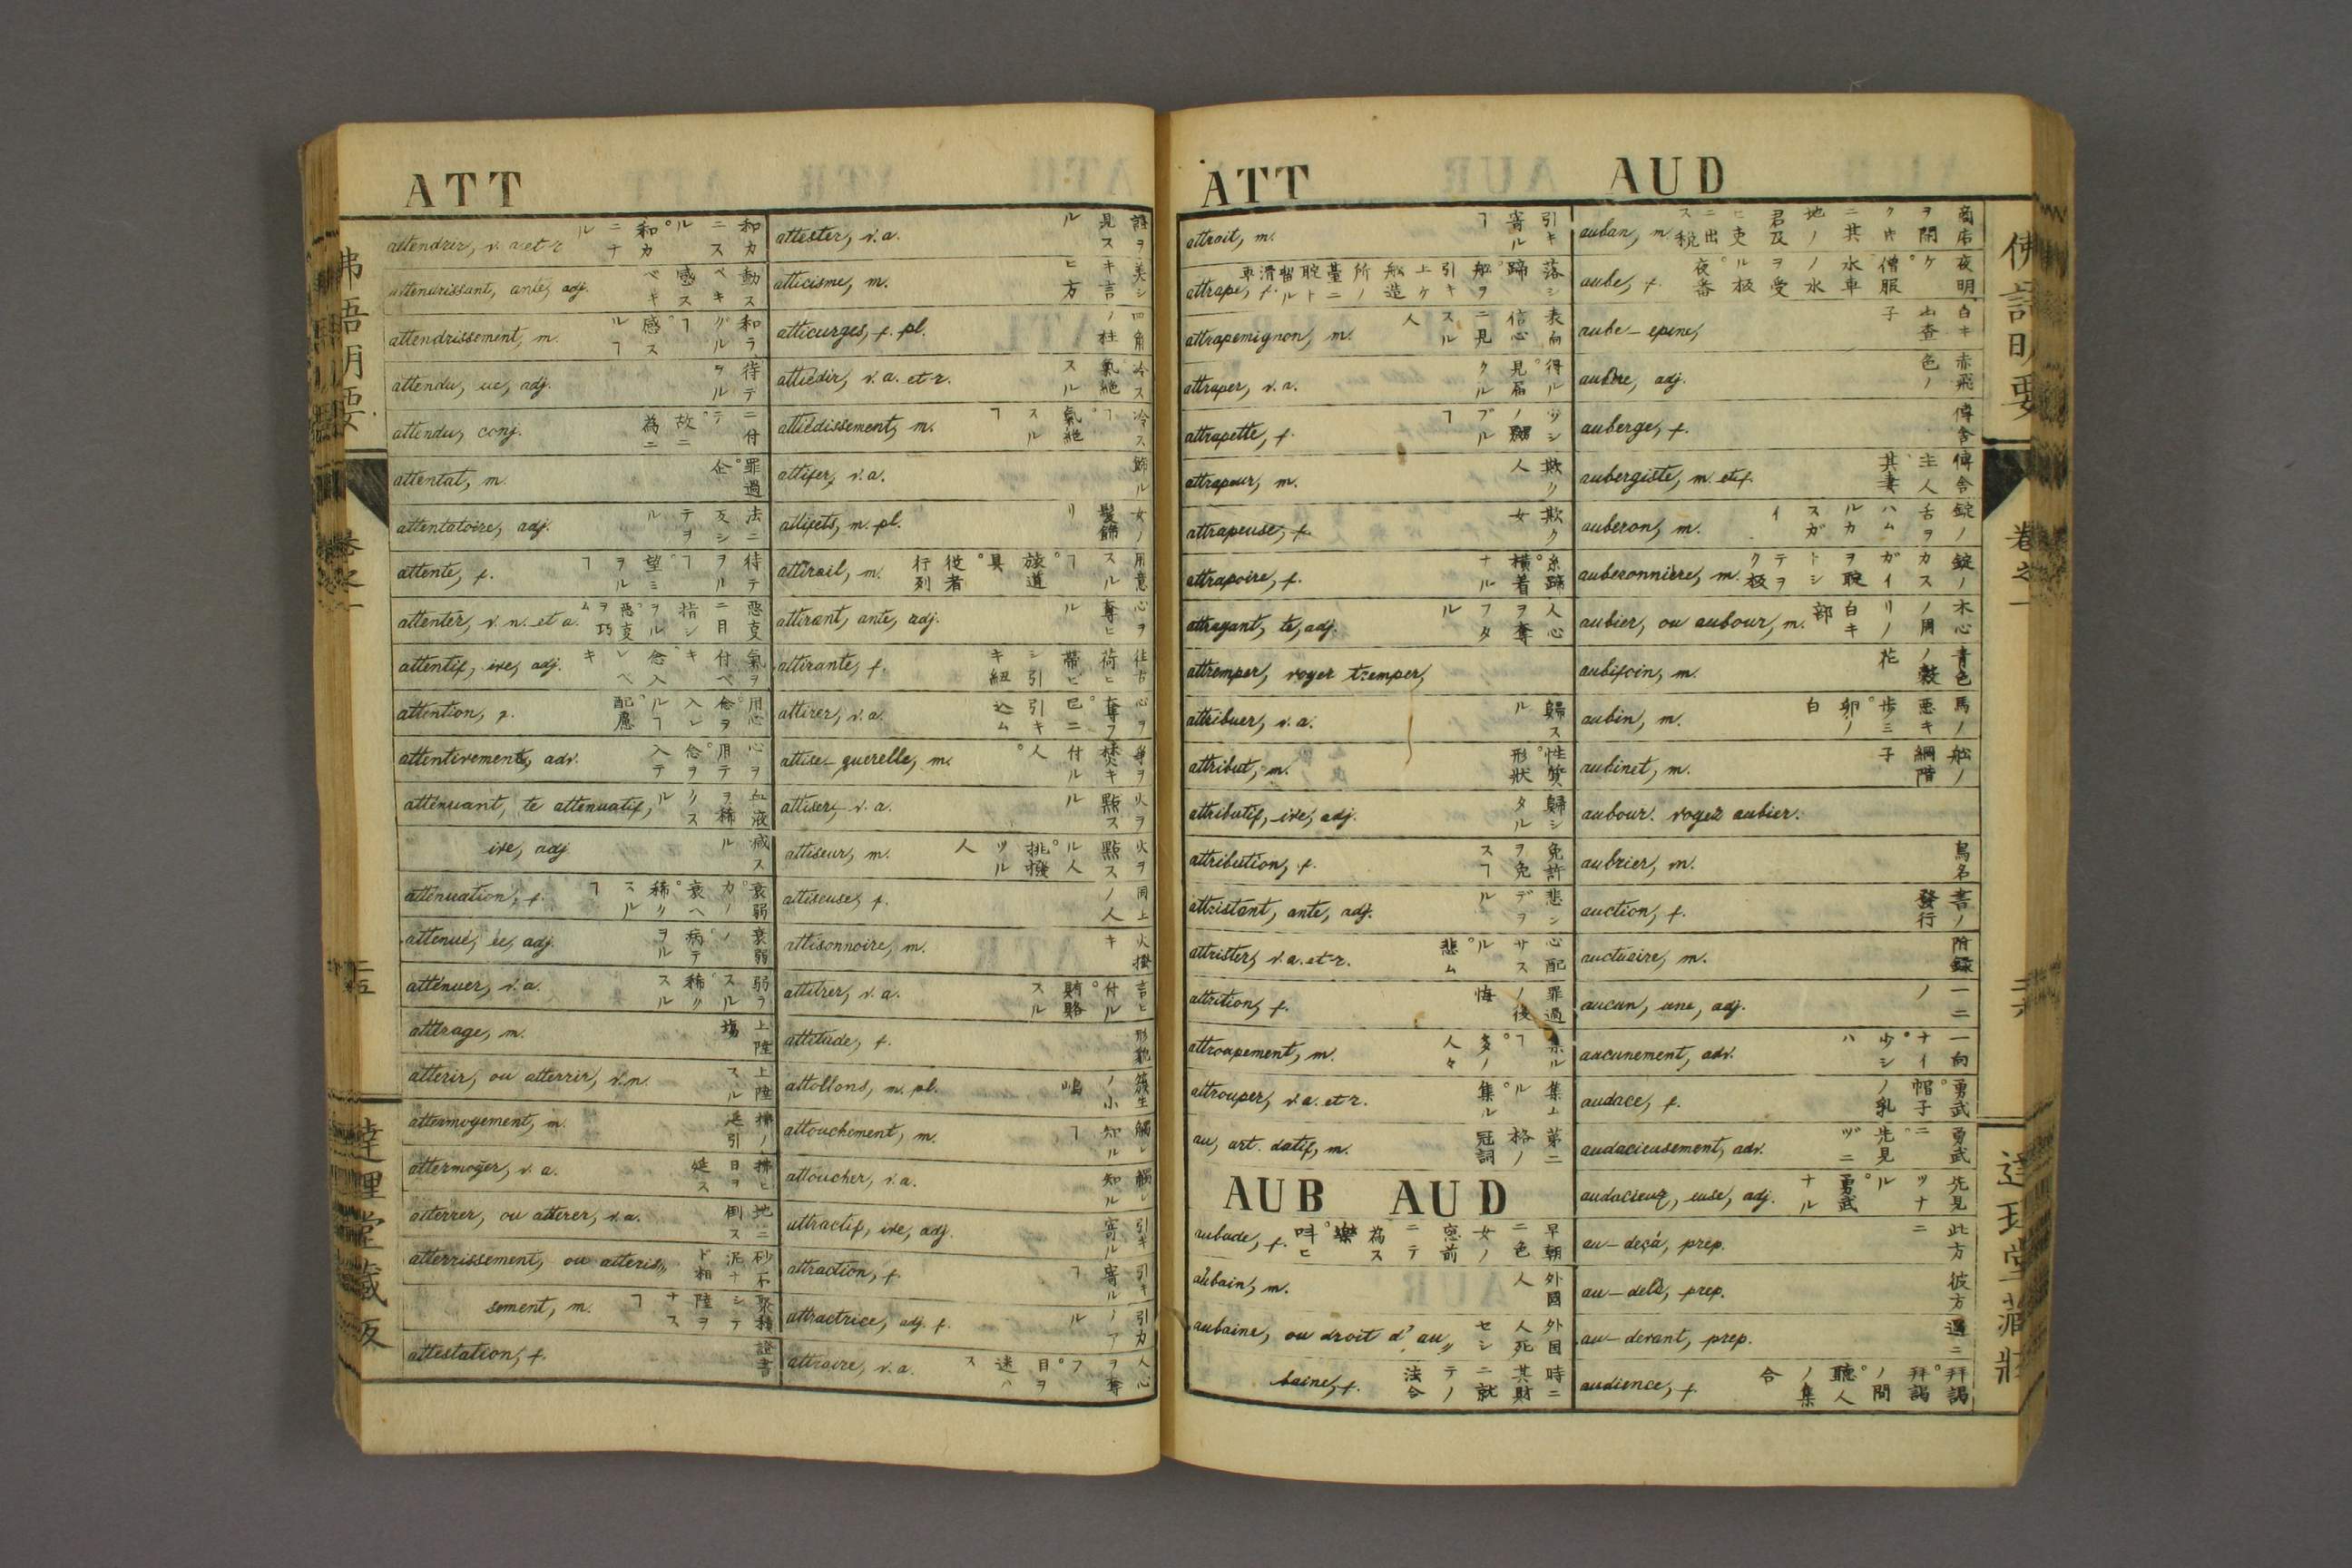 ATT
attendrir, v. a. et r. 和カニスル。和カニナル
attendrissant, ante, adj. 動スベキ感スベキ
attendrissement, m.
attendu, ue, adj. 待テヲル
attendu, conj. ニ付テ。故ニ為ニ
attentat, m. 罪過。企
attentatoire, adj. 法ニ反シテヲル
attente, f. 待テヲルヿ。望ミヲルヿ
attenter, v. n. et a.
attentif, ive, adj. 氣ヲ付ベキ。念入レベキ
attention, f.
attentivement, adv. 心ヲ用テ。念ヲ入テ
atténuant, te atténuatif,
ive, adj. 減スル
atténuation, f.
atténué, ée, adj.
atténuer, v. a. 弱ラスル。稀クスル
attérage, m. 上陸場
attérir, ou atterrir, v. n. 上陸スル
attermoyement, m. 拂ノ延引
attermoyer, v. a. 拂ヒ日ヲ延ス
atterrer, ou atterer, v. a. 地ニ倒ス
atterrissement, ou atteris〃
sement, m.
attestation, f. 證書
attester, v. a. 證ヲ見スル
atticisme, m. 美シキ言ヒ方
atticurges, f. pl. 四角ノ柱
attiédir, v. a. et r. 冷ス。氣絶スル
attiédissement, m. 冷スヿ。氣絶スルヿ
attifer, v. a. 飾ル
attifets, m. pl. 女ノ髪飾リ
attirail, m. 用意スルヿ。旅道具。從者行列
attirant, ante, adj. 心ヲ奪ヒル
attirante, f.
attirer, v. a. 心ヲ奪フ。己ニ引キ込ム
attise-querelle, m. 爭ヲ焚キ付ル人。
attiser, v. a. 火ヲ點スル
attiseur, m. 火ヲ點スル人。挑撥ツル人
attiseuse, f. 同上ノ人
attisonnoire, m. 火撥キ
attitrer, v. a. 言ヒ付ル。賄賂スル
attitude, f. 形貌
attollons, m. pl. 簇生ノ小嶋
attouchement, m. 觸レ知ルヿ
attoucher, v. a. 觸レ知ル
attractif, ive, adj. 引キ寄ル
attraction, f. 引キ寄ルヿ
attractrice, adj. f. 引力ノアル
attraire, v. a. 人心ヲ奪フ。目ヲ迷ハス
佛語明要 卷之一 二十五 達理堂藏版
ATT AUD
attrait, m. 引キ寄ルヿ
attrape, f.
attrapemignon, m. 表向信心ニ見スル人
attraper, v. a. 得ル。見届クル
attrapette, f. 少シノ嬲ブルヿ
attrapeur, m. 欺ク人
attrapeuse, f. 欺ク女
attrapoire, f. 係蹄。横着ナル
attrayant, te, adj. 人心ヲ奪フタル
attremper, voyez tremper,
attribuer, v. a. 歸スル
attribut, m. 性質。形狀
attributif, ive, adj. 歸シタル
attribution, f. 免許ヲ免スヿ
attristant, ante, adj. 悲ンデヲル
attrister, v. a. et r. 心配サスル。悲ム
attrition, f. 罪過ノ後悔
attroupement, m. 集ルヿ。多ノ人々
attrouper, v. a. et r. 集ル。集ル
au, art. datif, m. 第二格ノ冠詞
AUB AUD
aubade, f.
aubain, m. 外國人
aubaine, ou droit d'au〃 外国人死セシ
baine, f. 時ニ其財ニ就テノ法令
auban, m.
aube, f.
aube-épine, 白キ山査子
aubère, adj. 赤飛色ノ
auberge, f. 傳舎
aubergiste, m. et f. 傳舎主人。其妻
auberon, m.
auberonnière, m.
aubier, ou aubour, m. 木心ノ周リノ白キ部
aubifoin, m. 青色ノ穀花
aubin, m. 馬ノ悪キ歩ミ。卵ノ白
aubinet, m. 舩ノ綱階子
aubour. voyez aubier.
aubrier, m. 鳥名
auction, f. 書ノ發行
auctuaire, m. 附録
aucun, une, adj. 一二ノ
aucunement, adv. 一向ナイ。少シハ
audace, f. 勇武。帽子ノ乳
audacieusement, adv. 勇武ニ。先見ヅニ
audacieux, euse, adj. 先見ツナル。勇武ナル
au-deçà, prep. 此方ニ
au-delà, prep. 彼方
au-devant, prep. 遇ニ
audience, f. 拜謁。拜謁ノ間。聽人ノ集合
佛語明要 卷之一 二十六 達理堂藏版